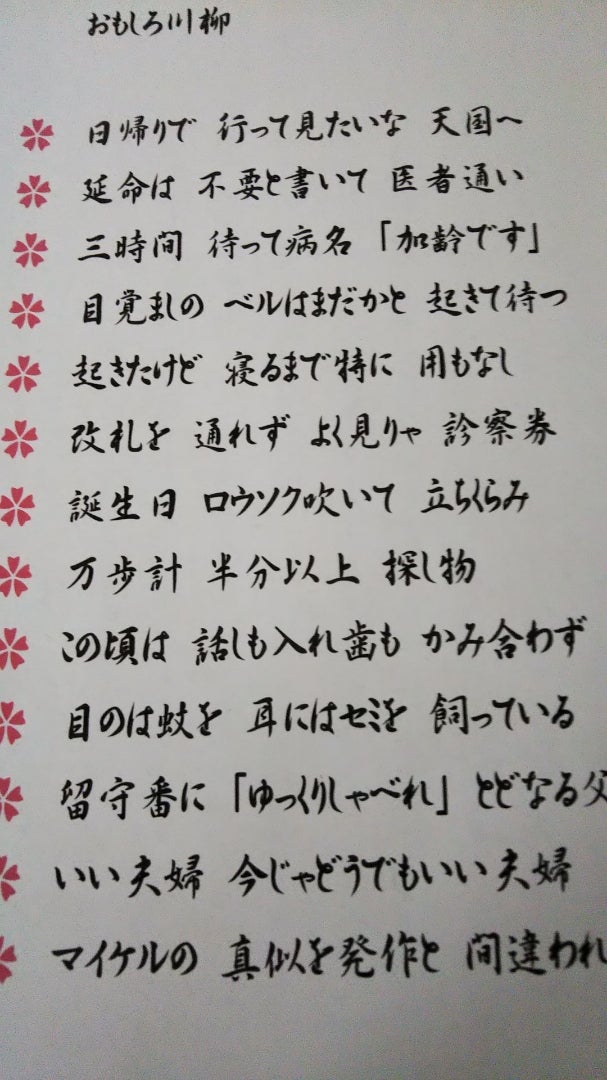 おもしろ川柳
日帰りで 行って見たいな 天国へ
延命は 不要と書いて 医者通い
三時間 待って病名 「加齢です」
目覚ましの ベルはまだかと 起きて待つ
起きたけど 寝るまで特に 用もなし
改札を 通れず よく見りゃ 診察券
誕生日 ロウソク吹いて 立ちくらみ
万歩計 半分以上 探し物
この頃は 話しも入れ歯も かみ合わず
目のは蚊を 耳にはセミを 飼っている
留守番に 「ゆっくりしゃべれ」 とどなる父
いい夫婦 今じゃどうでもいい夫婦
マイケルの 真似を発作と 間違われ